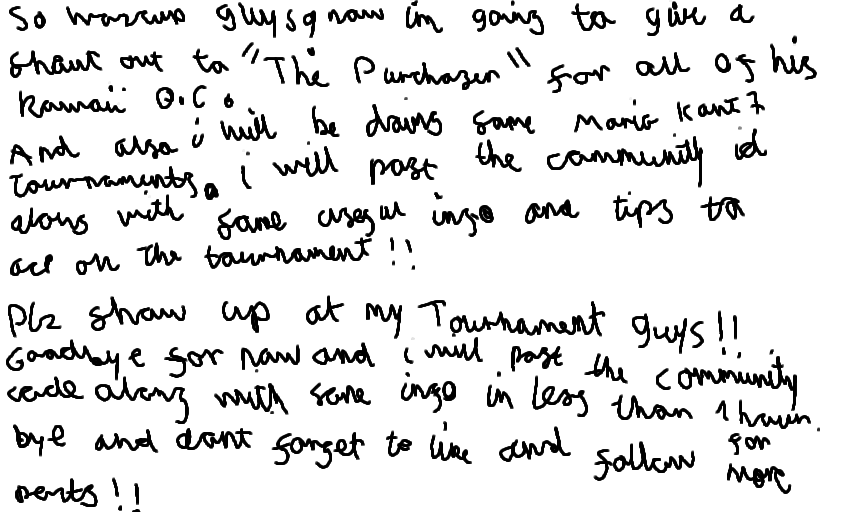 So wazzup guys, now im going to give a
shout out to "The Purchaser" for all of his
Kawaii O.C.
And also i will be doing some Mario Kart 7
Tournaments. i will post the community id
along with some useful info and tips to
ace on the tournament!!
Plz show up at my Tournament guys!!
Goodbye for now and i will post the community
code along with some info in less than 1 hour.
bye and dont forget to like and follow for
more
posts!!